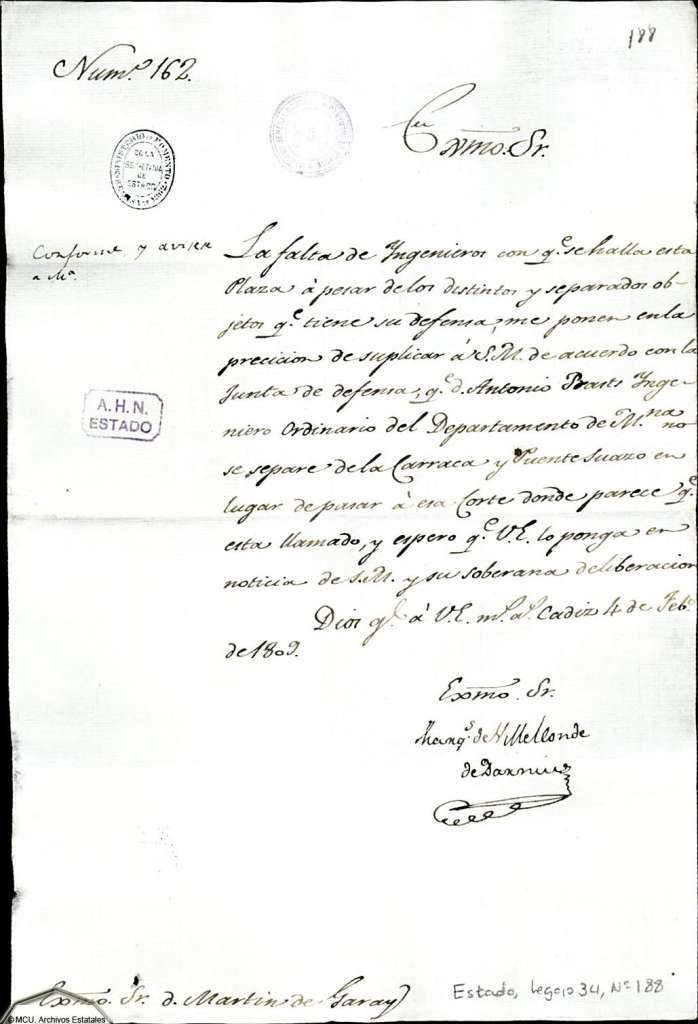 188
Num.º 162.
Exmo. Sr.
MINISTERIO DE FOMENTO
DE LA
SECRETARIA
DE
ESTADO
Conforme, y avisese
a Mª.
La falta de Ingenieros con q.e se halla esta
Plaza à pesar de los distintos y separados ob-
jetos q.e tiene su defensa, me ponen en la
precicion de suplicar á S.M. de acuerdo con la
Junta de defensa, q.e d. Antonio Prats Inge-
niero Ordinario del Departamento de M.na no
se separe de la Carraca y Puente Suazo en
lugar de pasar à esa Corte donde parece q.e
esta llamado, y espero q.e V.E. lo ponga en
noticia de S.M. y su soberana deliberacion
A.H.N.
ESTADO
Dios g.e á V.E. m.s a.s Cadiz 4 de Feb.o
de 1809.
Exmo. Sr.
Marq.s de
Exmo. Sr. d. Martin de Garay
Estado, Legajo 34, Nº 188
© MCU. Archivos Estatales